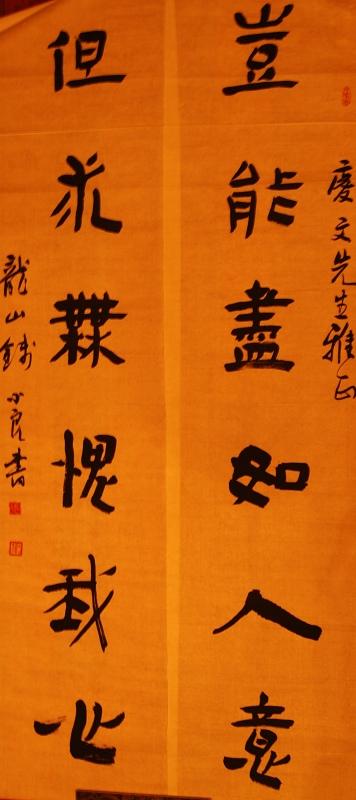 慶文先生雅正
豈能盡如人意
但求無愧我心
龍山錢小良書